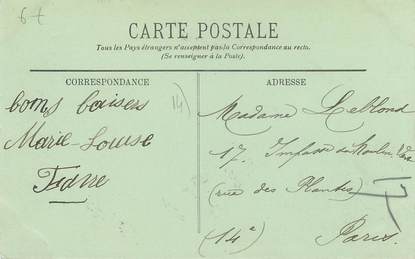 6f
CARTE POSTALE
Tous les Pays étrangers n'acceptent pas la Correspondance au recto.
(Se renseigner à la Poste).
CORRESPONDANCE
ADRESSE
bons baisers
Marie-Louise
14)
Madame Leblond
17. Impasse du Moulin
(rue des Plantes)
(14e)
Paris.